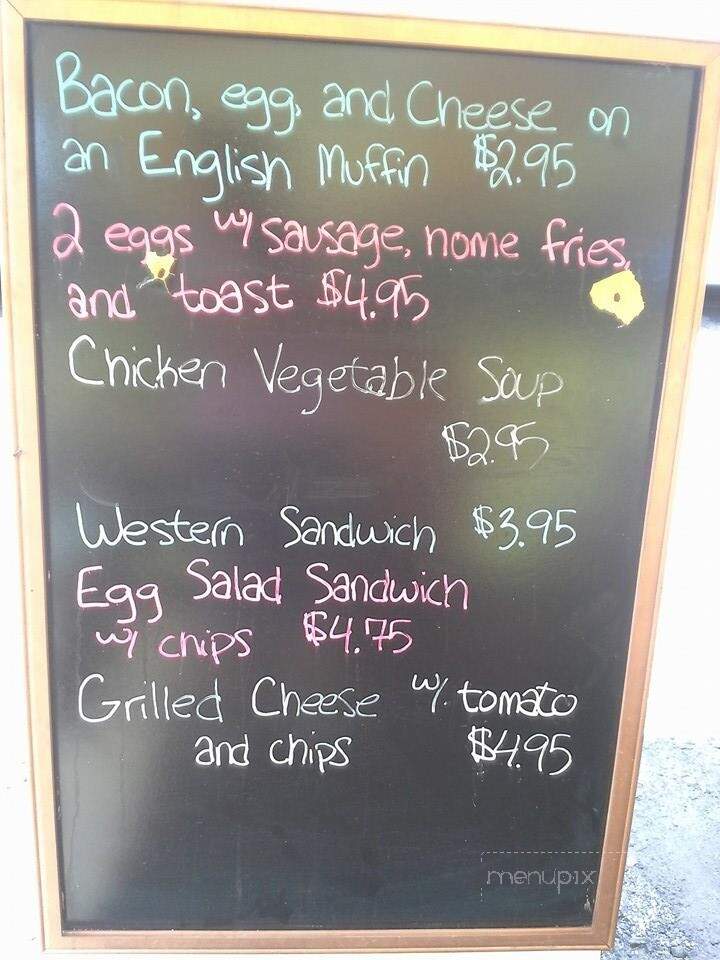 Bacon, egg, and Cheese on
an English Muffin $2.95
2 eggs w/ sausage, home fries,
and toast $4.95
Chicken Vegetable Soup
$2.95
Western Sandwich $3.95
Egg Salad Sandwich
w/ chips $4.75
Grilled Cheese w/ tomato
and chips $4.95
menupix